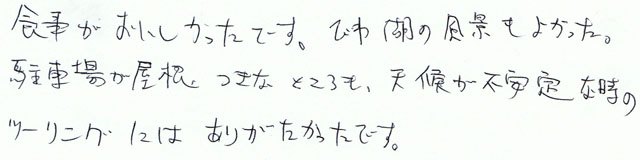 食事がおいしかったです。びわ湖の風景もよかった。
駐車場が屋根つきなところも、天候が不安定な時の
ツーリングにはありがたかったです。